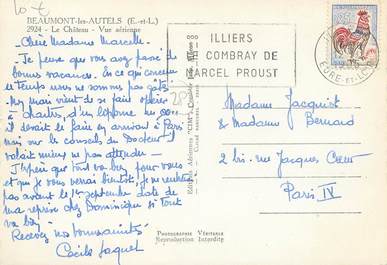 10 €
BEAUMONT-les-AUTELS (E.-et-L.)
2924 - Le Château - Vue aérienne
Chère Madame Marcelle.
Je pense que vous avez passé de
bonnes vacances. En ce qui concerne
le temps nous ne sommes pas gâtés.
my mari vient de se faire opérer
à Chartres, d'un
il devait le faire en arrivant à Paris
mais sur les conseils du Docteur il
valait mieux ne pas attendre
J'espère que tout va bien pour vous
et que je vous verrai bientôt, je ne rentre
pas avant le 1er septembre date de
ma reprise chez Dominique si tout
va bien.
Recevez nos bons
Cécile Jaquet
PHOTOGRAPHIE VÉRITABLE
Reproduction Interdite
Editions Aériennes "CIM", Combier
ILLIERS
COMBRAY DE
MARCEL PROUST
EURE-ET-LOIR
Madame Jacquist
& Madame Bernard
2 bis. rue Jacques Coeur
Paris IV